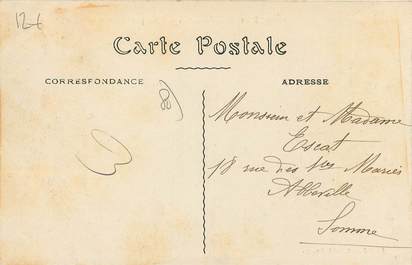 12€
Carte Postale
CORRESPONDANCE
ADRESSE
Monsieur et Madame
Escat
18 rue des Stes Maries
Abbeville
Somme